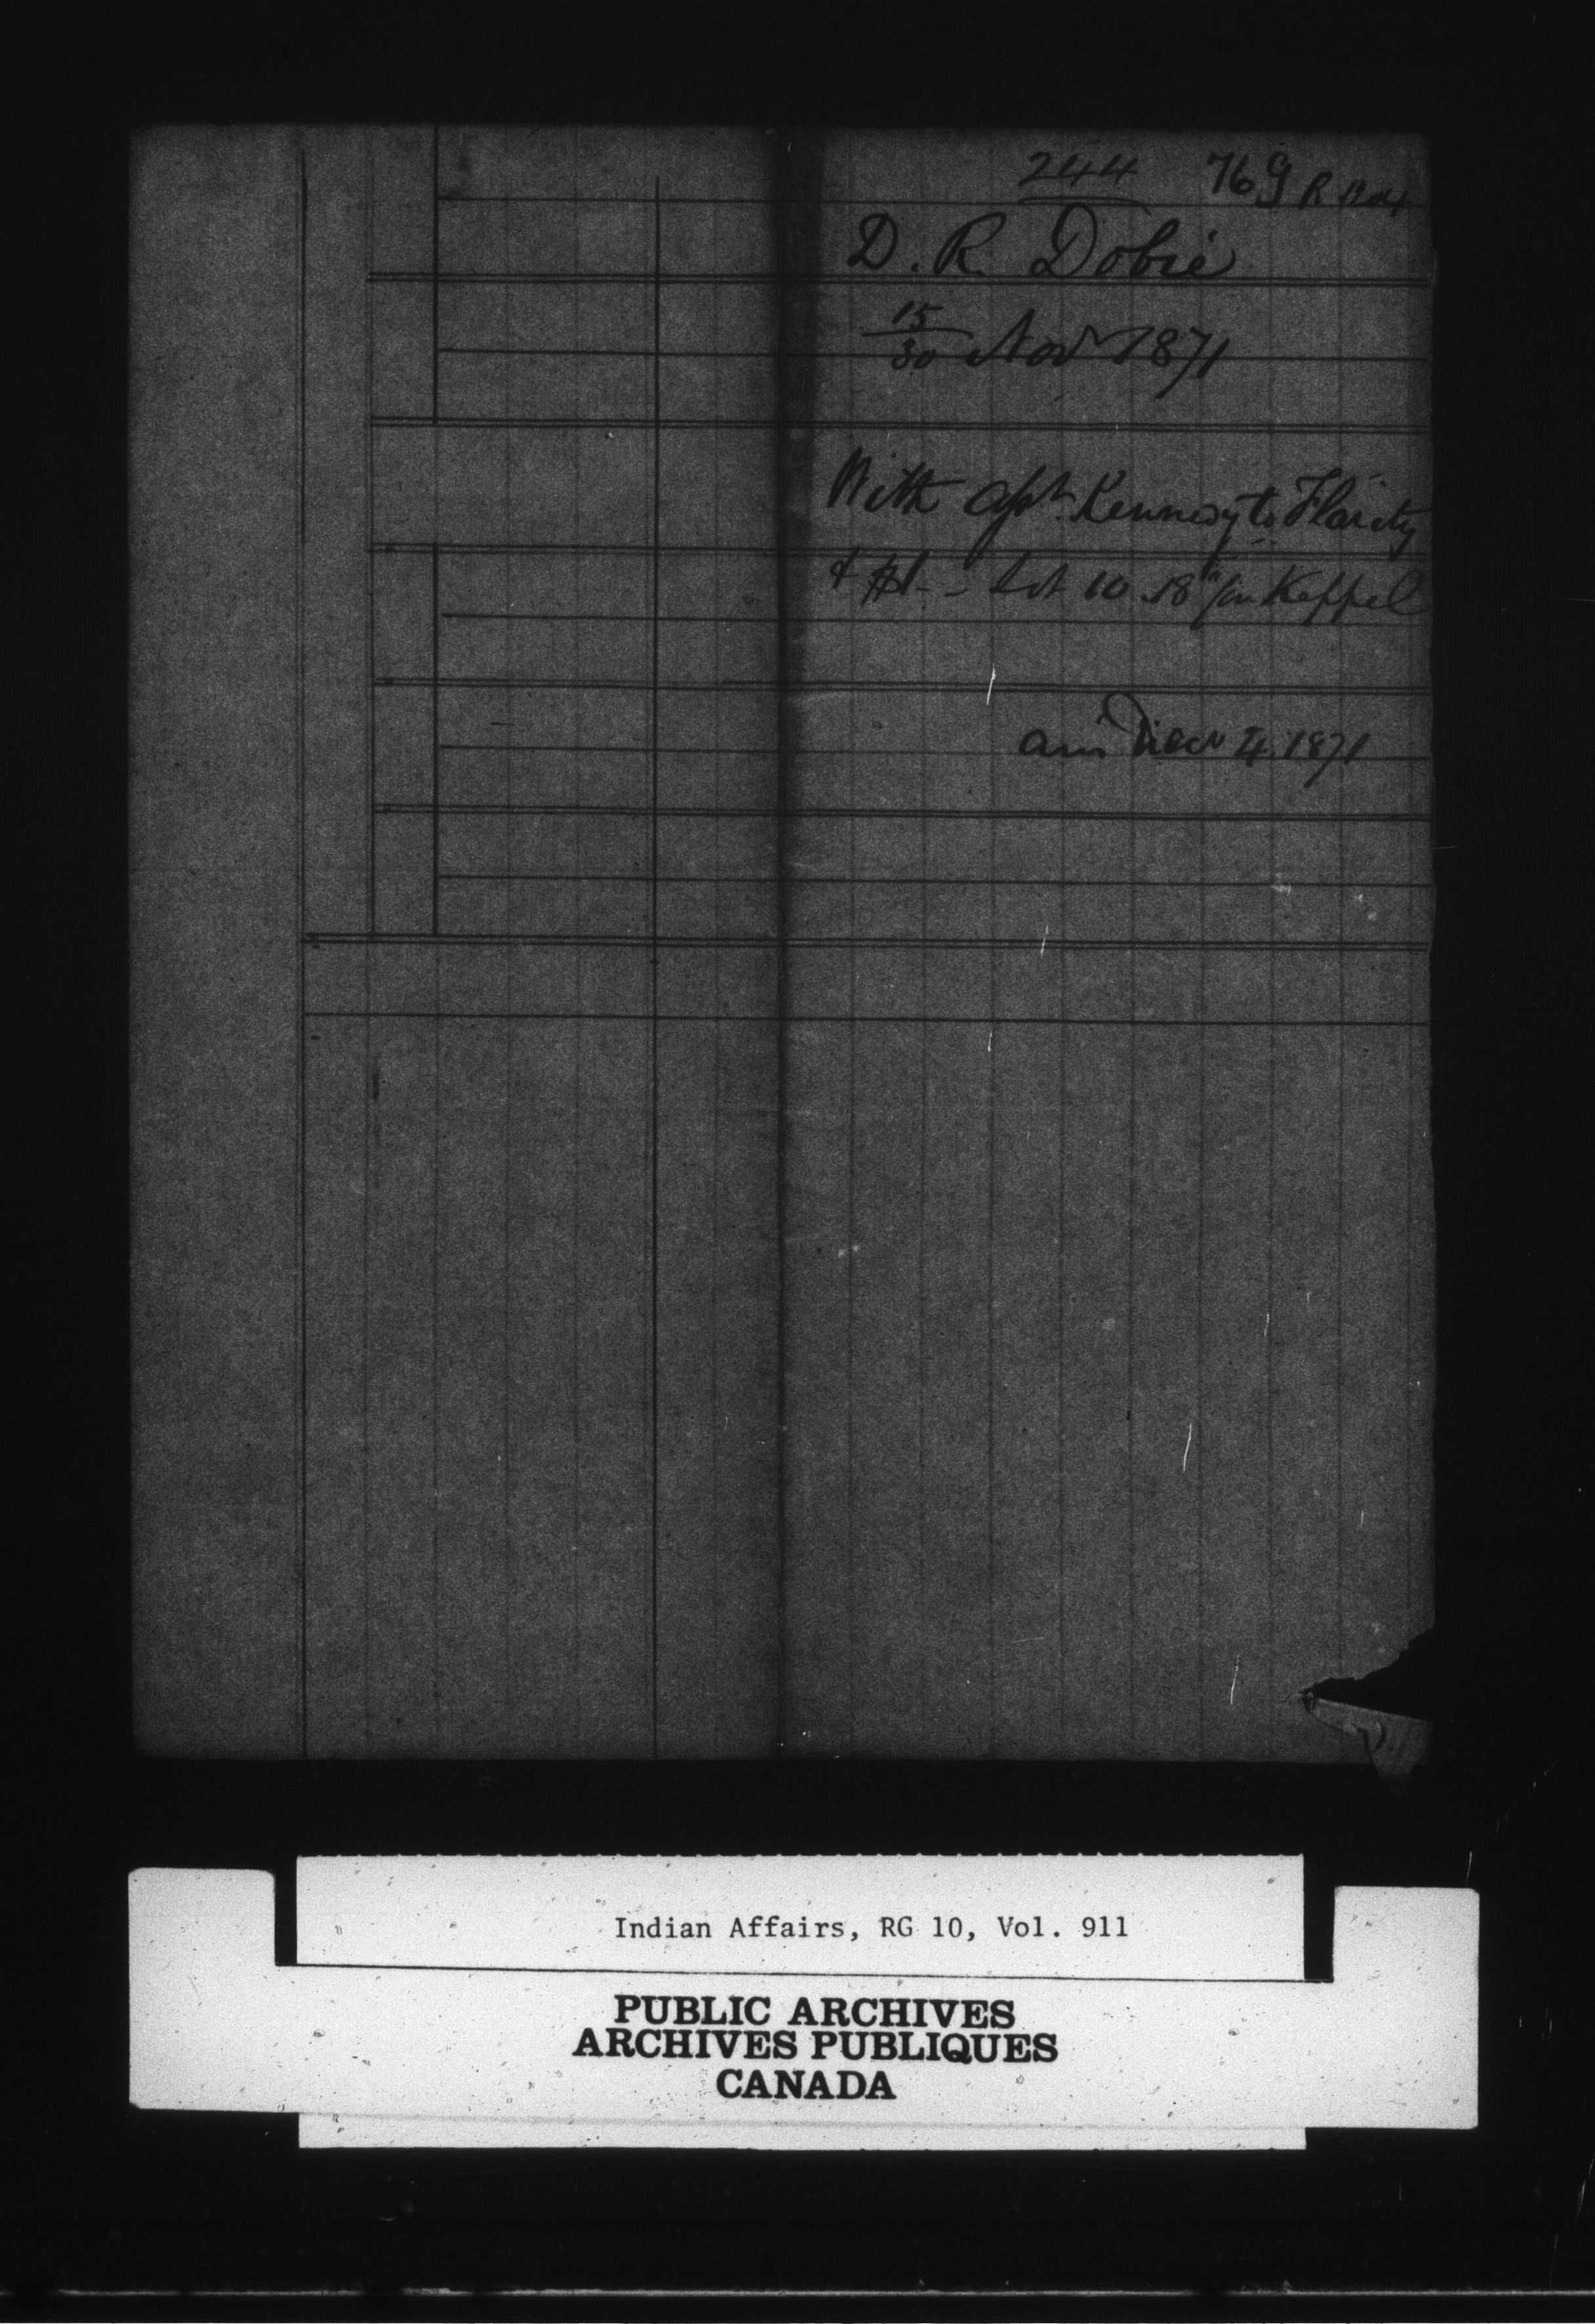 244 769
D. R. Dobie
15/30 Nov 1871
With Asst. Kennedy to Flarity
& $1 - - Lot 10 .18th Con Keppel
4 1871
Indian Affairs, RG 10, Vol. 911
PUBLIC ARCHIVES
ARCHIVES PUBLIQUES
CANADA